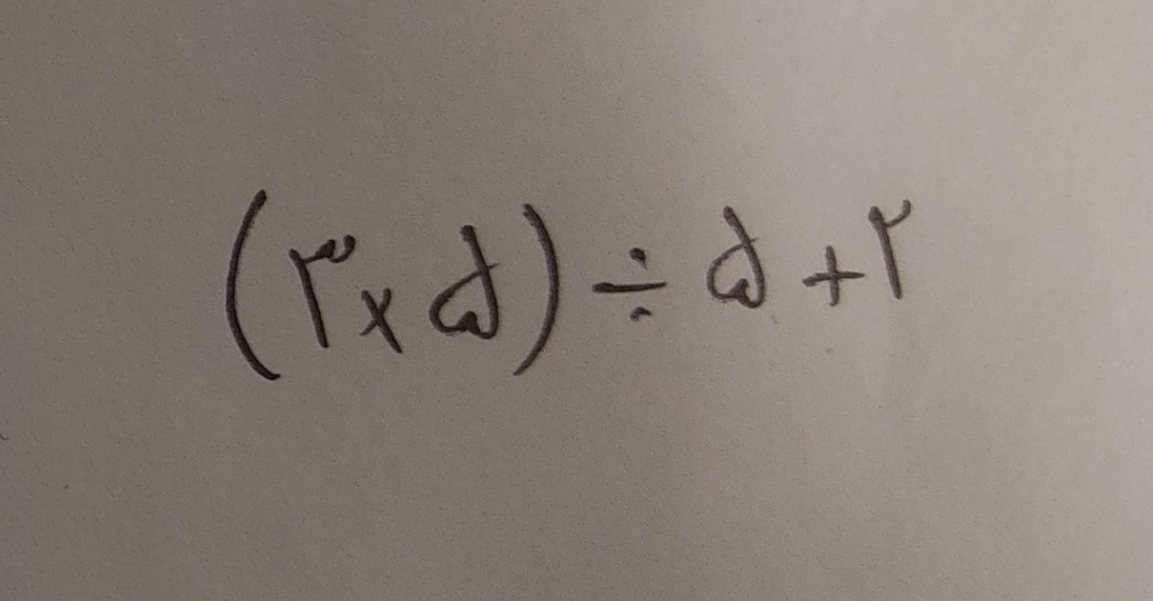 (۳×۵)÷۵+۲